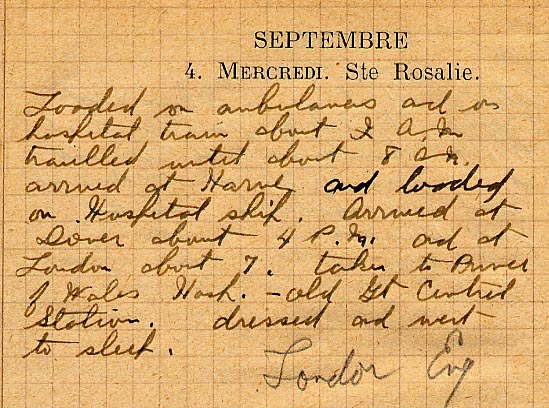 SEPTEMBRE
4. MERCREDI. Ste Rosalie.
Loaded on ambulances and on
hospital train about 2 A.M.
travelled until about 8 A.M.
arrived at Havre and loaded
on Hospital ship. Arrived at
Dover about 4 P.M. and at
London about 7. taken to Prince
of Wales Hosp. - old Gt Central
Station. dressed and went
to sleep.
London Eng